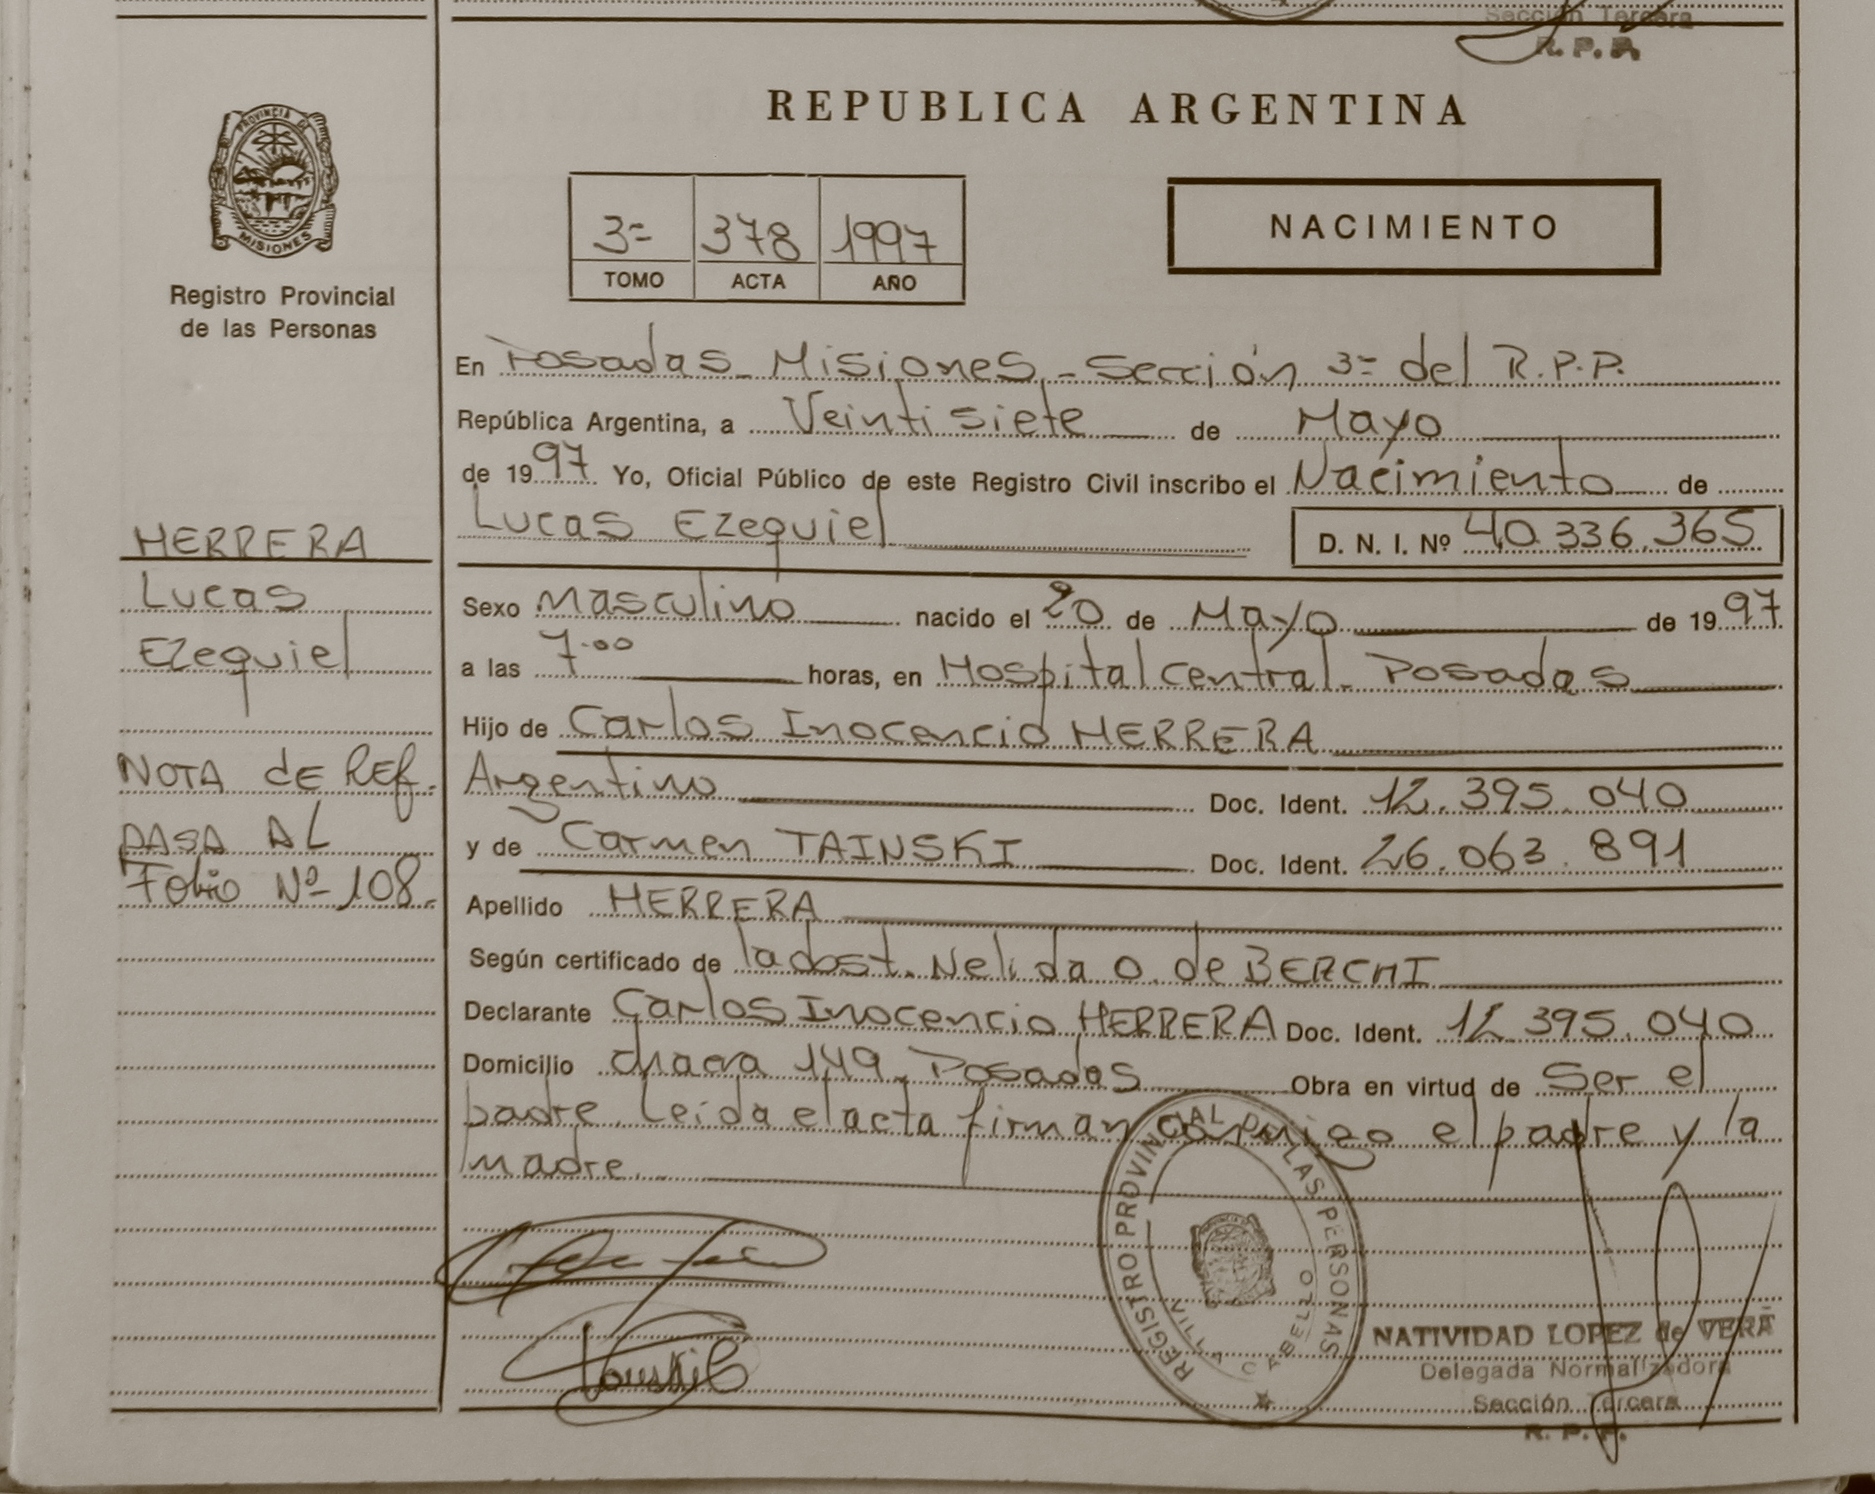 Sección Tercera
R. P. P.
PROVINCIA DE
MISIONES
Registro Provincial
de las Personas
HERRERA
Lucas
Ezequiel
NOTA de Ref.
PASA AL
Folio Nº 108.
REPUBLICA ARGENTINA
3= 378 1997
TOMO ACTA AÑO
NACIMIENTO
En Posadas - Misiones - Sección 3= del R.P.P.
República Argentina, a Veintisiete de Mayo
de 1997 Yo, Oficial Público de este Registro Civil inscribo el Nacimiento de
Lucas Ezequiel D. N. I. Nº 40.336.365
Sexo Masculino nacido el 20 de Mayo de 1997
a las 7.00 horas, en Hospital central - Posadas
Hijo de Carlos Inocencio HERRERA
Argentino Doc. Ident. 12.395.040
y de Carmen TAINSKI Doc. Ident. 26.063.891
Apellido HERRERA
Según certificado de la obst. Nelida O. de BERCHI
Declarante Carlos Inocencio HERRERA Doc. Ident. 12.395.040
Domicilio chacra 149 - Posadas Obra en virtud de Ser el
padre. Leida el acta firman conmigo el padre y la
madre.
REGISTRO PROVINCIAL DE LAS PERSONAS
VILLA CABELLO
NATIVIDAD LOPEZ de VERA
Delegada Normalizadora
Sección Tercera
R. P. P.